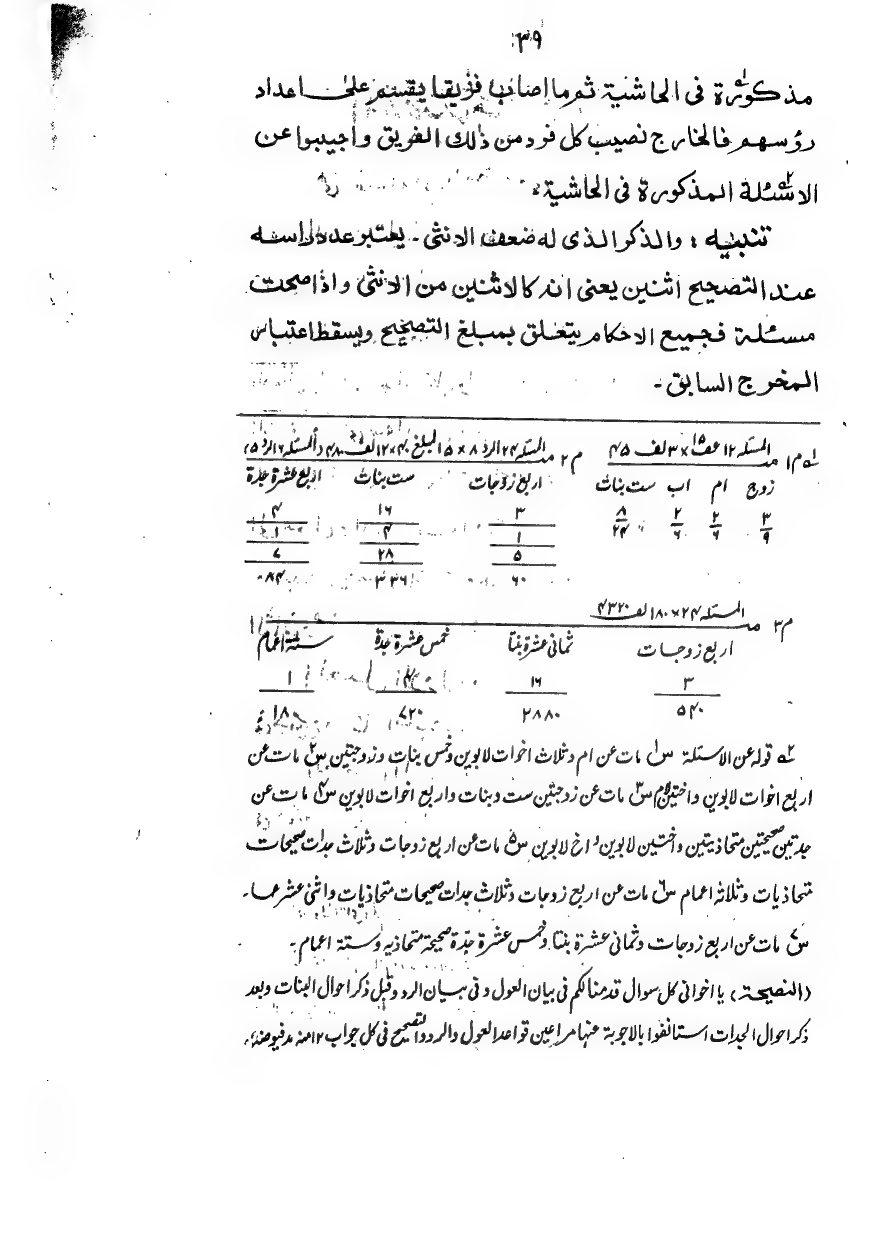 ٣٩
مذكورة فى الحاشية ثم ما اصاب فريقا يقسم على اعداد
رؤسهم فالخارج نصيب كل فرد من ذلك الفريق واجيبوا عن
الاسئلة المذكورة فى الحاشية
تنبيه : والذكر الذى له ضعف الانثى ۔ يعتبر عدد راسه
عند التصحيح اثنين يعنى انه كالاثنين من الانثى واذا صحت
مسئلة فجميع الاحكام يتعلق بمبلغ التصحيح ويسقط اعتبار
المخرج السابق ۔
م١ المسئله ١٢ ١٥ × ٣ لف ٤٥
زوج ام اب ست بنات
٣ ٢ ٢ ٨
٩ ٦ ٦ ٢٤
م٢ المسئله ٢٤ الرد ٨ × ٥ المبلغ ٤٠ × ١٢ لف ٤٨٠
اربع زوجات ست بنات اربع عشرة جدة
٣ ١٦ ٤
١ ٤ ١
٥ ٢٨ ٧
٦٠ ٣٣٦ ٨٤
م٣ المسئله ٢٤ × ١٨٠ لف ٤٣٢٠
اربع زوجات ثمانى عشرة بنتا خمس عشرة جدة ستة اعمام
٣ ١٦ ٤ ١
٥٤٠ ٢٨٨٠ ٧٢٠ ١٨٠
٢ه قوله عن الاسئلة س١ مات عن ام وثلاث اخوات لابوين وخمس بنات وزوجتين س٢ مات عن
اربع اخوات لابوين واختين لام س٣ مات عن زوجتين ست وبنات واربع اخوات لابوين س٤ مات عن
جدتين صحيحتين متحاذيتين واختين لابوين واخ لابوين س٥ مات عن اربع زوجات وثلاث جدات صحيحات
متحاذيات وثلاثه اعمام س٦ مات عن اربع زوجات وثلاث جدات صحيحات متحاذيات واثنى عشر عما ۔
س٧ مات عن اربع زوجات وثمانى عشرة بنتا وخمس عشرة جدة صحيحة متحاذيه وستة اعمام ۔
(النصيحة) يا اخوانى كل سوال قدمنا لكم فى بيان العول وفى بيان الرد وقبل ذكر احوال البنات وبعد
ذكر احوال الجدات استانفوا بالاجوبة عنها مراعين قواعد العول والرد والتصحيح فى كل جواب ١٢ منه مد فيوضه